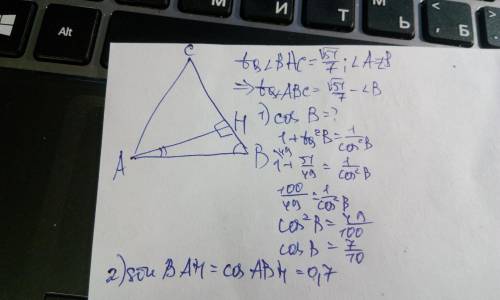 Alt
C
A
H
B
tg∠BAC = √51/7; ∠A=∠B
⇒ tg∠ABC = √51/7 - ∠B
1) cos B = ?
1 + tg²B = 1/cos²B
1 + 51/49 = 1/cos²B
100/49 = 1/cos²B
cos²B = 49/100
cos B = 7/10
2) sin BAH = cos ABH = 0,7